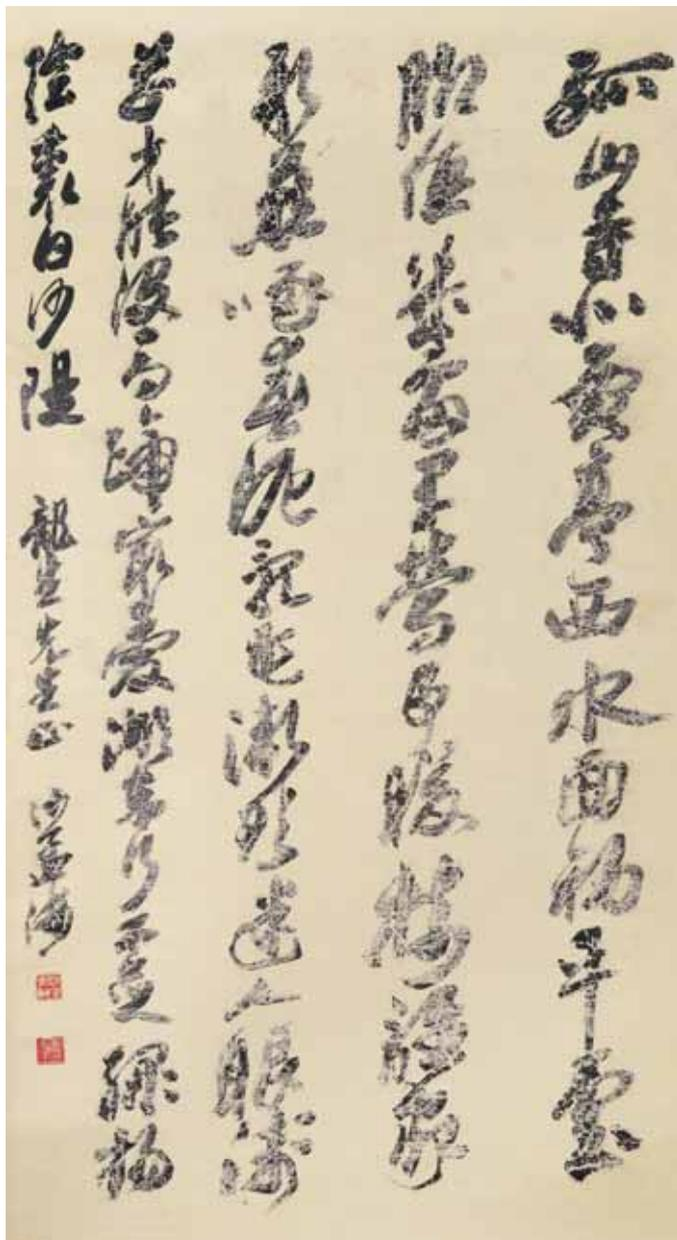 孤山寺北賈亭西水面初平雲
腳低幾處早鶯爭暖樹誰家
新燕啄春泥亂花漸欲迷人眼淺
草才能沒馬蹄最愛湖東行不足綠楊
陰裏白沙隄 龍 先生正 沙孟海